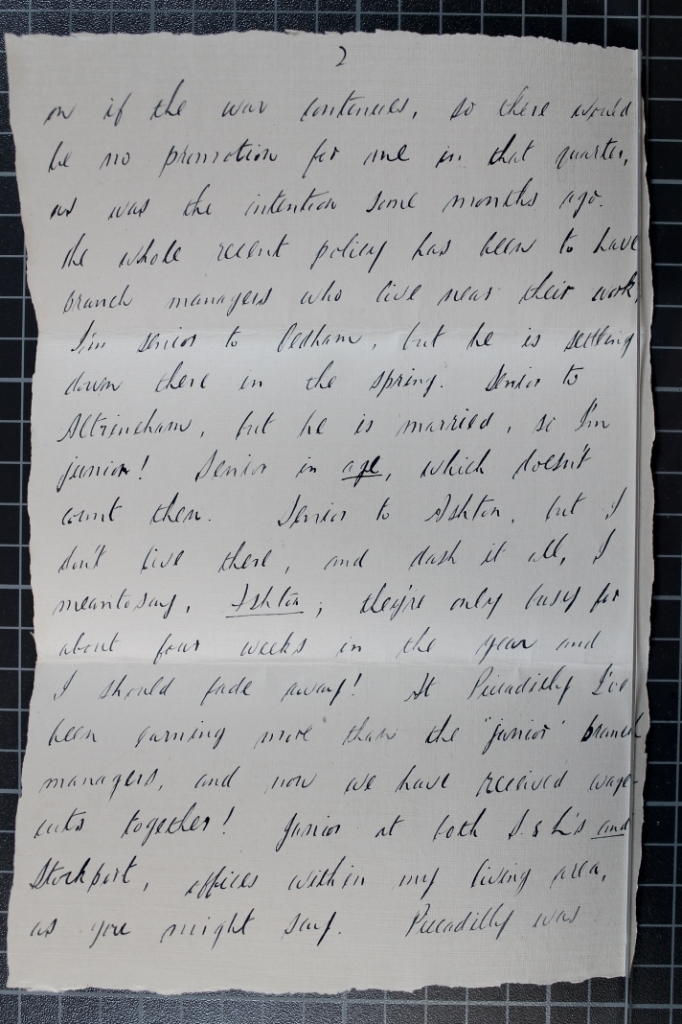 2
on if the war continues, so there would
be no promotion for me in that quarter,
as was the intention some months ago.
The whole recent policy has been to have
branch managers who live near their work,
I'm senior to Oldham, but he is settling
down there in the spring. Senior to
Altrincham, but he is married, so I'm
junior! Senior in age, which doesn't
count then. Senior to Ashton, but I
don't live there, and dash it all, I
meantosay, Ashton; they're only busy for
about four weeks in the year and
I should fade away! At Piccadilly I've
been earning more than the "junior" branch
managers, and now we have received wage-
cuts together! Junior at both S. & L's and
Stockport, offices within my living area,
as you might say. Piccadilly was